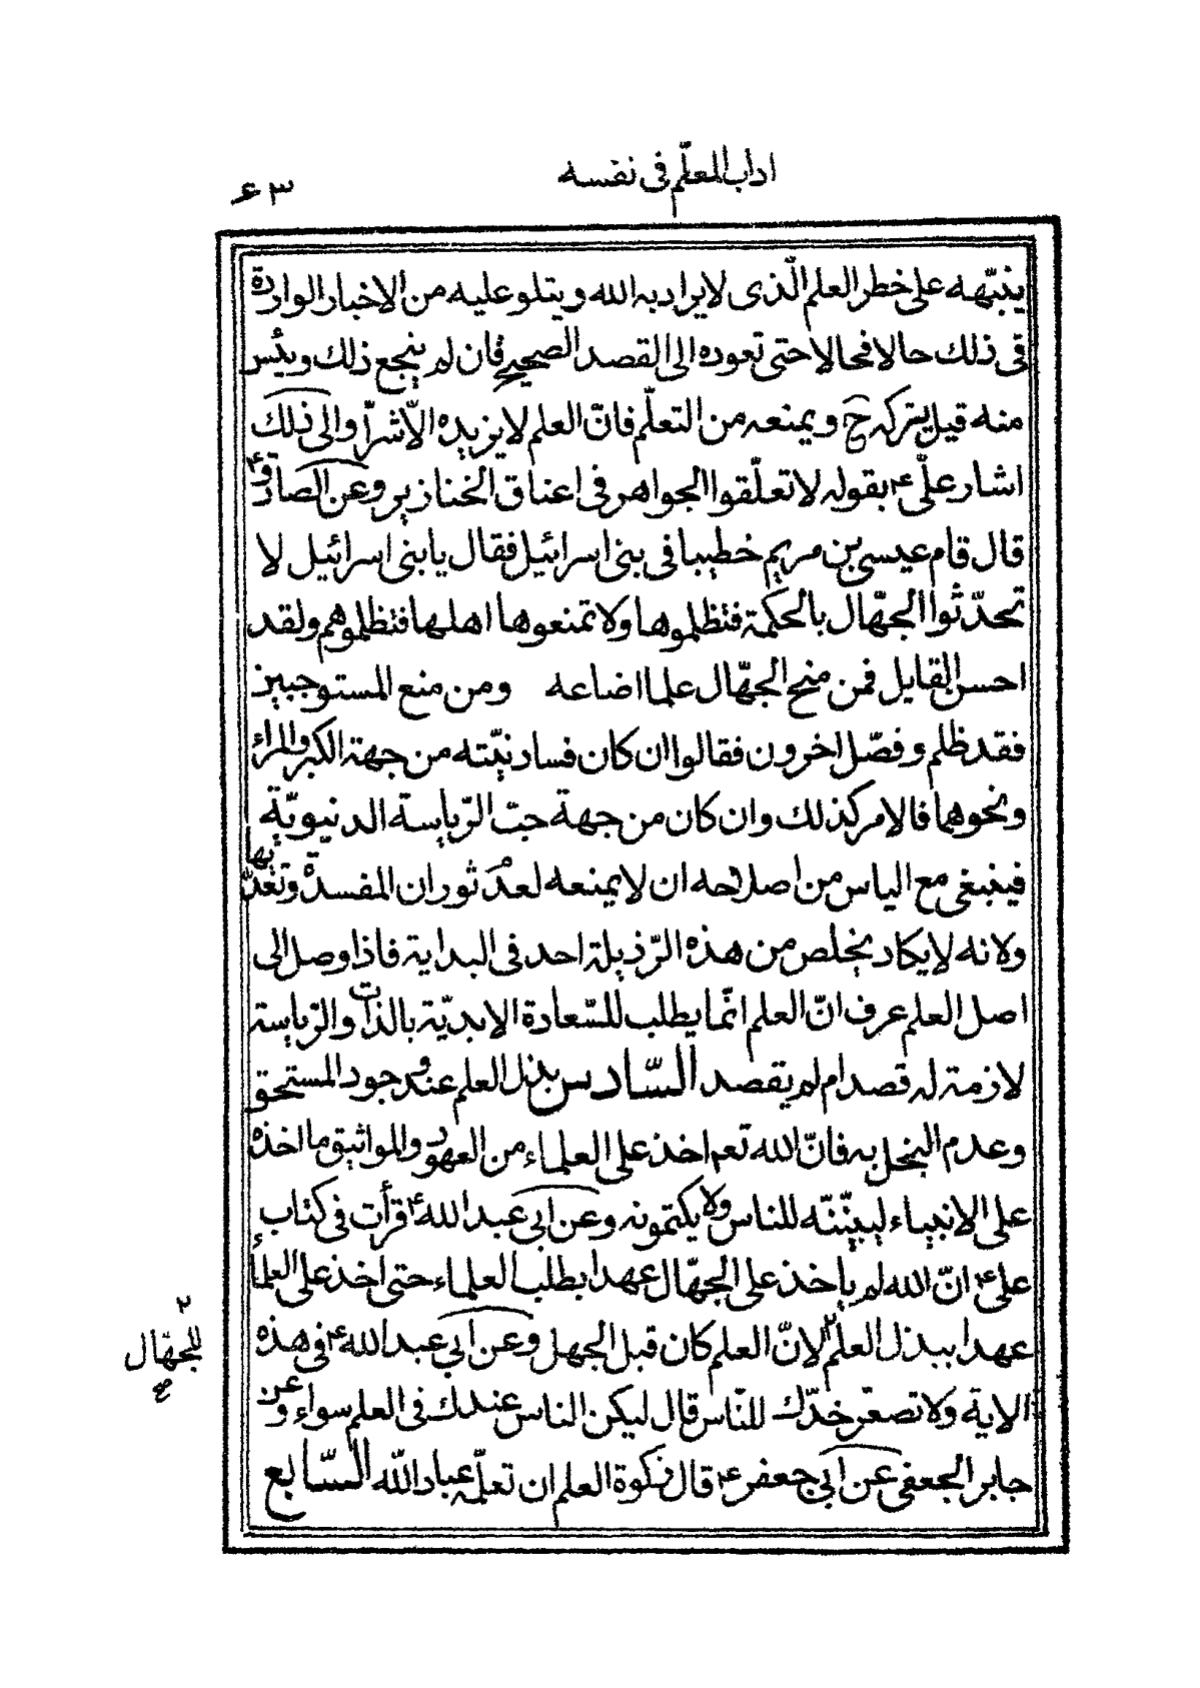 اداب المعلّم فى نفسه
۶۳
ينبّهه على خطر العلم الّذى لا يراد به الله ويتلو عليه من الاخبار الواردة
فى ذلك حالا فحالا حتى تعوده الى القصد الصحيح فان لم ينجع ذلك ويئس
منه قيل يتركه ح ويمنعه من التعلّم فانّ العلم لا يزيده الّا شرّا والى ذلك
اشار علىّ ع بقوله لا تعلّقوا الجواهر فى اعناق الخنازير وعن الصادق ع
قال قام عيسى بن مريم خطيبا فى بنى اسرائيل فقال يا بنى اسرائيل لا
تحدّثوا الجهّال بالحكمة فتظلموها ولا تمنعوها اهلها فتظلموهم ولقد
احسن القايل فمن منح الجهّال علما اضاعه ومن منع المستوجبين
فقد ظلم وفصّل اخرون فقالوا ان كان فساد نيّته من جهة الكبر والمراء
ونحوهما فالامر كذلك وان كان من جهة حبّ الرّياسة الدنيويّة
فينبغى مع الياس من اصلاحه ان لا يمنعه لعدم ثوران المفسدة وتعدّيها
ولانه لا يكاد يخلص من هذه الرّذيلة احد فى البداية فاذا وصل الى
اصل العلم عرف انّ العلم انّما يطلب للسّعادة الابديّة بالذات والرّياسة
لازمة له قصد ام لم يقصد السّادس بذل العلم عند وجود المستحق
وعدم البخل به فانّ الله تعم اخذ على العلماء من العهود والمواثيق ما اخذه
على الانبياء ليبيّننّه للناس ولا يكتمونه وعن ابى عبد الله ع قرأت فى كتاب
على ع انّ الله لم ياخذ على الجهّال عهدا بطلب العلماء حتى اخذ على العلماء
عهدا ببذل العلم ٢ لانّ العلم كان قبل الجهل وعن ابى عبد الله ع فى هذه
٢
للجهّال
صح
الاية ولا تصعّر خدّك للنّاس قال ليكن الناس عندك فى العلم سواء وعن
جابر الجعفى عن ابى جعفر ع قال زكوة العلم ان تعلّمه عباد الله السّابع